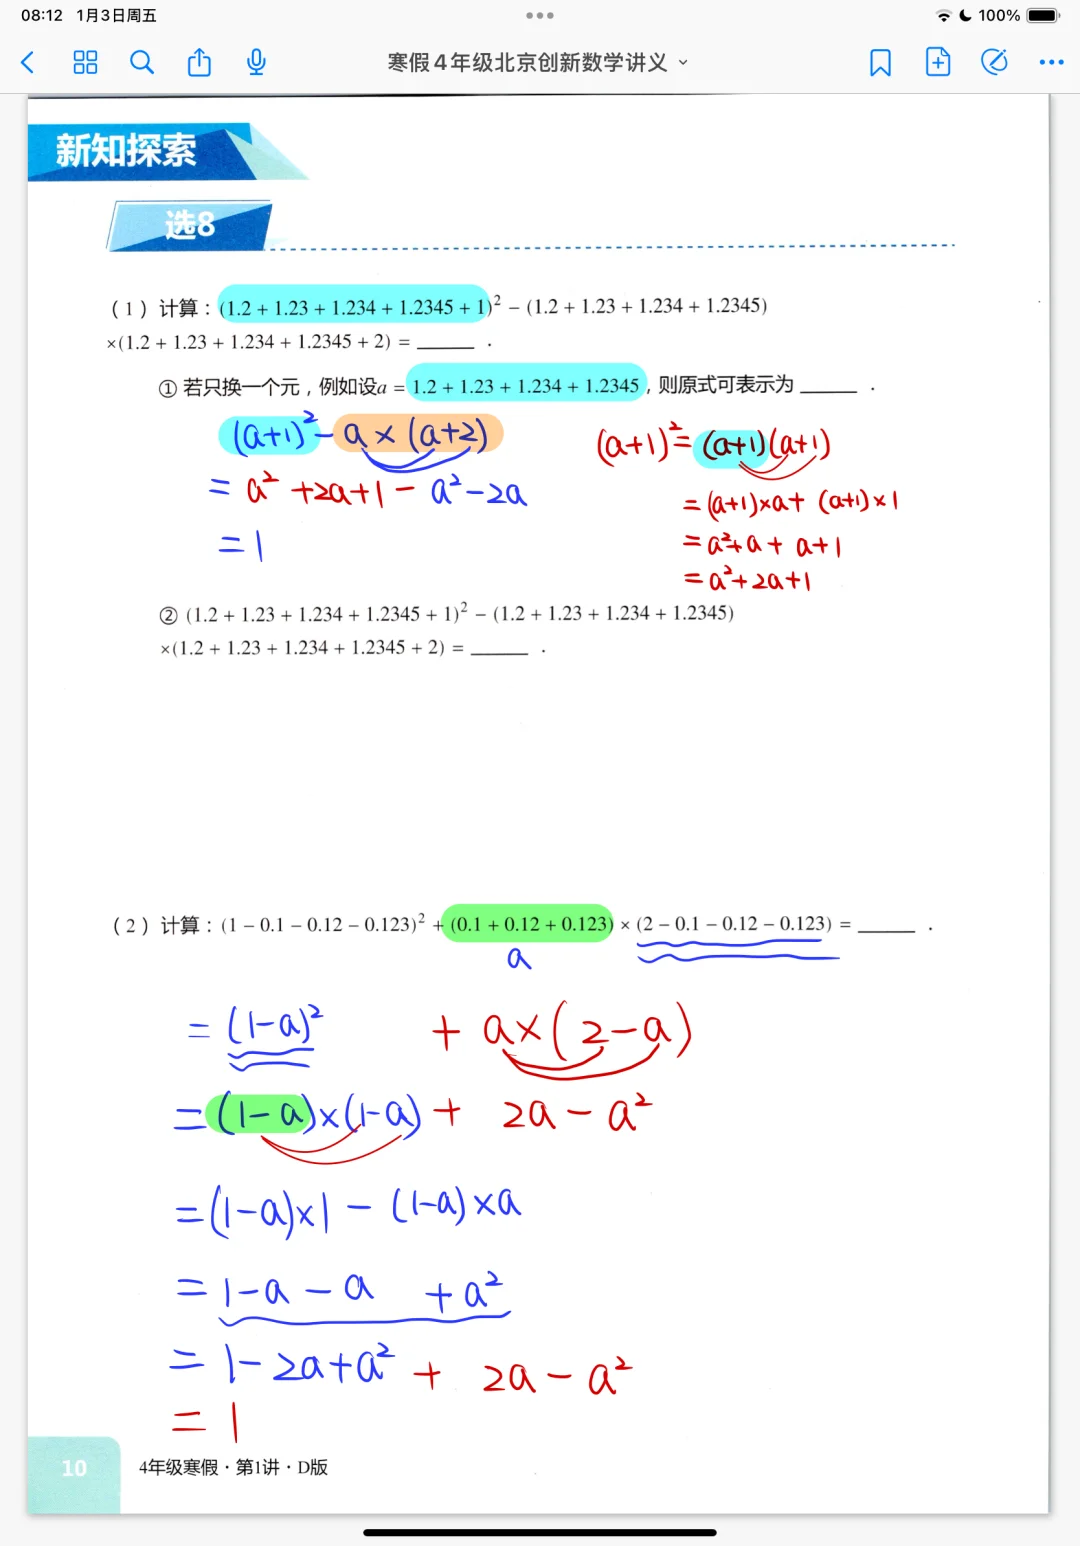 08:12 1月3日周五
100%
寒假4年级北京创新数学讲义
新知探索
选8
（1）计算：(1.2 + 1.23 + 1.234 + 1.2345 + 1)² − (1.2 + 1.23 + 1.234 + 1.2345)
×(1.2 + 1.23 + 1.234 + 1.2345 + 2) = ______ .
① 若只换一个元，例如设a = 1.2 + 1.23 + 1.234 + 1.2345，则原式可表示为 ______ .
(a+1)² − a × (a+2)
= a² + 2a + 1 − a² − 2a
= 1
(a+1)² = (a+1)(a+1)
= (a+1)×a + (a+1)×1
= a² + a + a + 1
= a² + 2a + 1
② (1.2 + 1.23 + 1.234 + 1.2345 + 1)² − (1.2 + 1.23 + 1.234 + 1.2345)
×(1.2 + 1.23 + 1.234 + 1.2345 + 2) = ______ .
（2）计算：(1 − 0.1 − 0.12 − 0.123)² + (0.1 + 0.12 + 0.123) × (2 − 0.1 − 0.12 − 0.123) = ______ .
a
= (1−a)² + a×(2−a)
= (1−a)×(1−a) + 2a − a²
= (1−a)×1 − (1−a)×a
= 1−a − a + a²
= 1−2a+a² + 2a − a²
= 1
10
4年级寒假·第1讲·D版